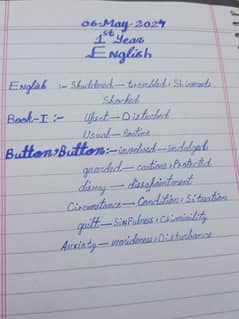 06-May-2024
1st Year
English
English :- Shuddered — trembled, Shivered,
Shocked
Book-I :- Upset — Disturbed
Usual — Routine
Button, Button :- involved — indulged
guarded — cautions, Protected
dismay — dissapointment
Circumstance — Condition, Situation
guilt — Sinfulness, Criminility
Anxiety — worideness, Disturbance